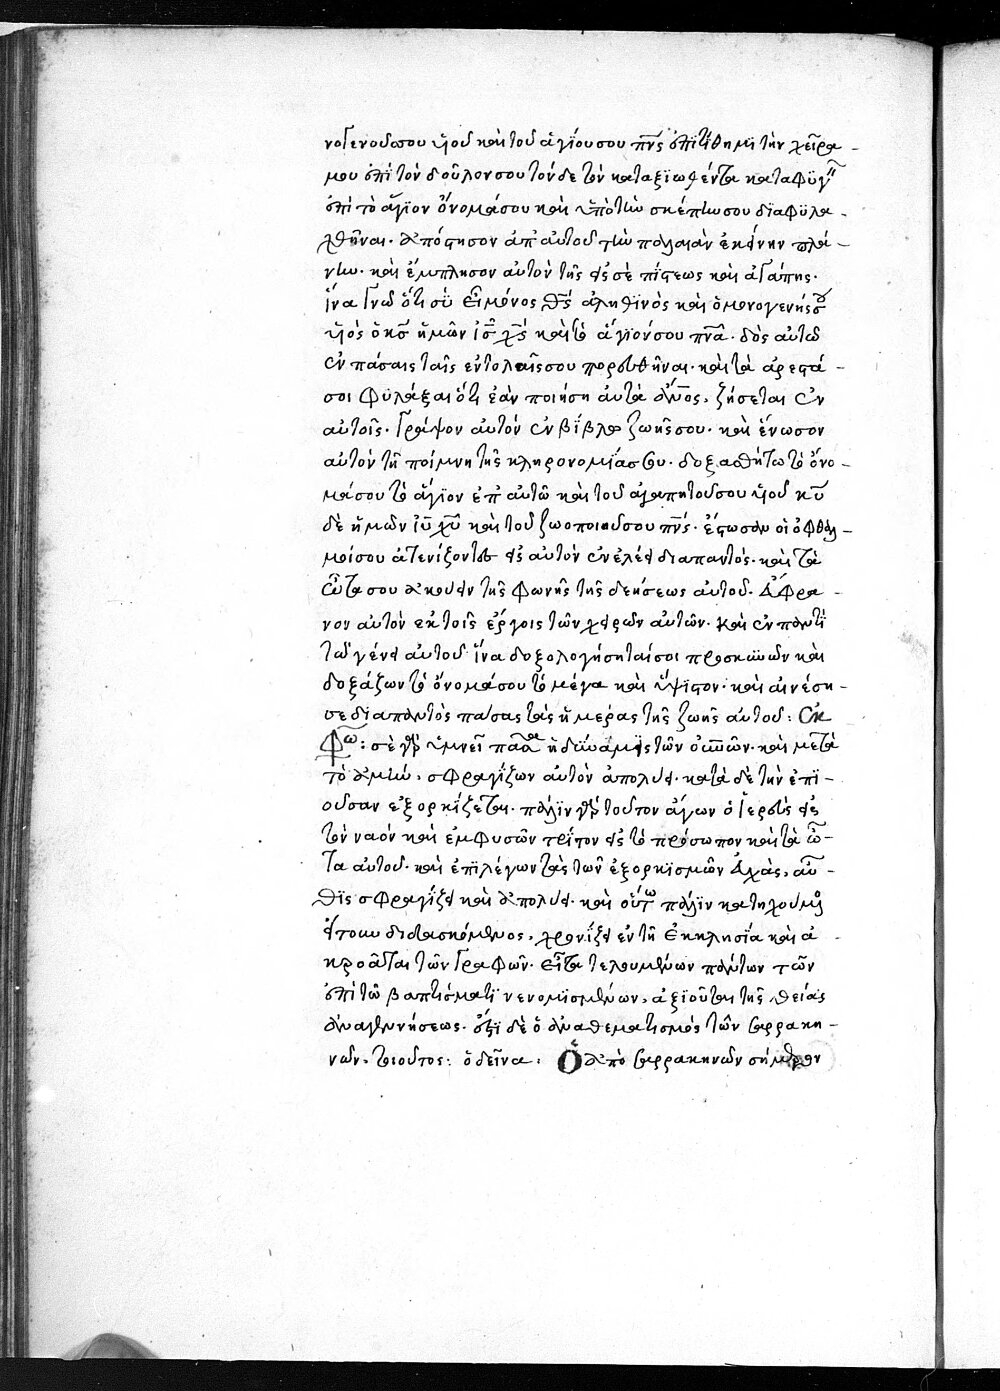 νογενοῦς σου υἱοῦ καὶ τοῦ ἁγίου σου πν̅ς ἐπιτίθημι τὴν χεῖρα
μου ἐπὶ τὸν δοῦλον σου τόνδε τὸν καταξιωθέντα καταφυγ
ἐπὶ τὸ ἅγιον ὄνομά σου καὶ ὑπὸ τὴν σκέπην σου διαφυλα
χθῆναι· ἀπόστησον ἀπ' αὐτοῦ τὴν παλαιὰν ἐκείνην πλά
νην· καὶ ἔμπλησον αὐτὸν τῆς εἰς σὲ πίστεως καὶ ἀγάπης·
ἵνα γνῷ ὅτι σὺ εἶ μόνος θς̅ ἀληθινὸς καὶ ὁ μονογενής σου
υἱὸς ὁ κς̅ ἡμῶν ις̅ χς̅ καὶ τὸ ἅγιόν σου πν̅α· δὸς αὐτῷ
ἐν πάσαις ταῖς ἐντολαῖς σου πορευθῆναι· καὶ τὰ ἀρεστά
σοι φυλάξαι ὅτι ἐὰν ποιήση αὐτὰ ἄν̅ος, ζήσεται ἐν
αὐτοῖς· γράψον αὐτὸν ἐν βίβλω ζωῆς σου· καὶ ἕνωσον
αὐτὸν τῆ ποίμνη τῆς κληρονομίας σου· δοξασθήτω τὸ ὄνο
μά σου τὸ ἅγιον ἐπ' αὐτῶ καὶ τοῦ ἀγαπητοῦ σου υἱοῦ κυ̅
δὲ ἡμῶν ιυ̅ χυ̅ καὶ τοῦ ζωοποιοῦ σου πν̅ς· ἔστωσαν οἱ ὀφθαλ
μοί σου ἀτενίζοντες εἰς αὐτὸν ἐν ἐλέει διαπαντός· καὶ τὰ
ὦτα σου ἀκούειν τῆς φωνῆς τῆς δεήσεως αὐτοῦ. Εὔφρα
νον αὐτὸν ἐν τοῖς ἔργοις τῶν χειρῶν αὐτῶν· καὶ ἐν παντὶ
τῶ γένει αὐτοῦ ἵνα δοξολογήσηταί σοι προσκυνῶν καὶ
δοξάζων τὸ ὄνομά σου τὸ μέγα καὶ ὕψιστον· καὶ αἰνέση
σε διαπαντὸς πάσας τὰς ἡμέρας τῆς ζωῆς αὐτοῦ: Ἐκ
φω: σὲ γὰρ ὑμνεῖ πᾶσα ἡ δύναμις τῶν οὐν̅ῶν· καὶ μετὰ
τὸ ἀμὴν, σφραγίζων αὐτὸν ἀπολύει· κατὰ δὲ τὴν ἐπι
οῦσαν ἐξορκίζεται· πάλιν γὰρ τοῦτον ἄγων ὁ ἱερεὺς εἰς
τὸν ναὸν καὶ ἐμφυσῶν τρίτον εἰς τὸ πρόσωπον καὶ τὰ ὦ
τα αὐτοῦ· καὶ ἐπιλέγων τὰς τῶν ἐξορκισμῶν εὐχὰς, αὖ
θις σφραγίζει καὶ ἀπολύει· καὶ οὕτω πάλιν κατηχούμενος
ἤτοι διδασκόμενος, χρονίζει ἐν τῆ ἐκκλησία καὶ ἀ
κροᾶται τῶν γραφῶν· εἶτα τελουμένων πάντων τῶν
ἐπὶ τῶ βαπτίσματι νενομισμένων, ἀξιοῦται τῆς θείας
ἀναγεννήσεως· ἔχει δὲ ὁ ἀναθεματισμὸς τῶν σαρρακη
νῶν, τοιοῦτος: ὁ δεῖνα· Ὁ ἀπὸ σαρρακηνῶν σήμερον